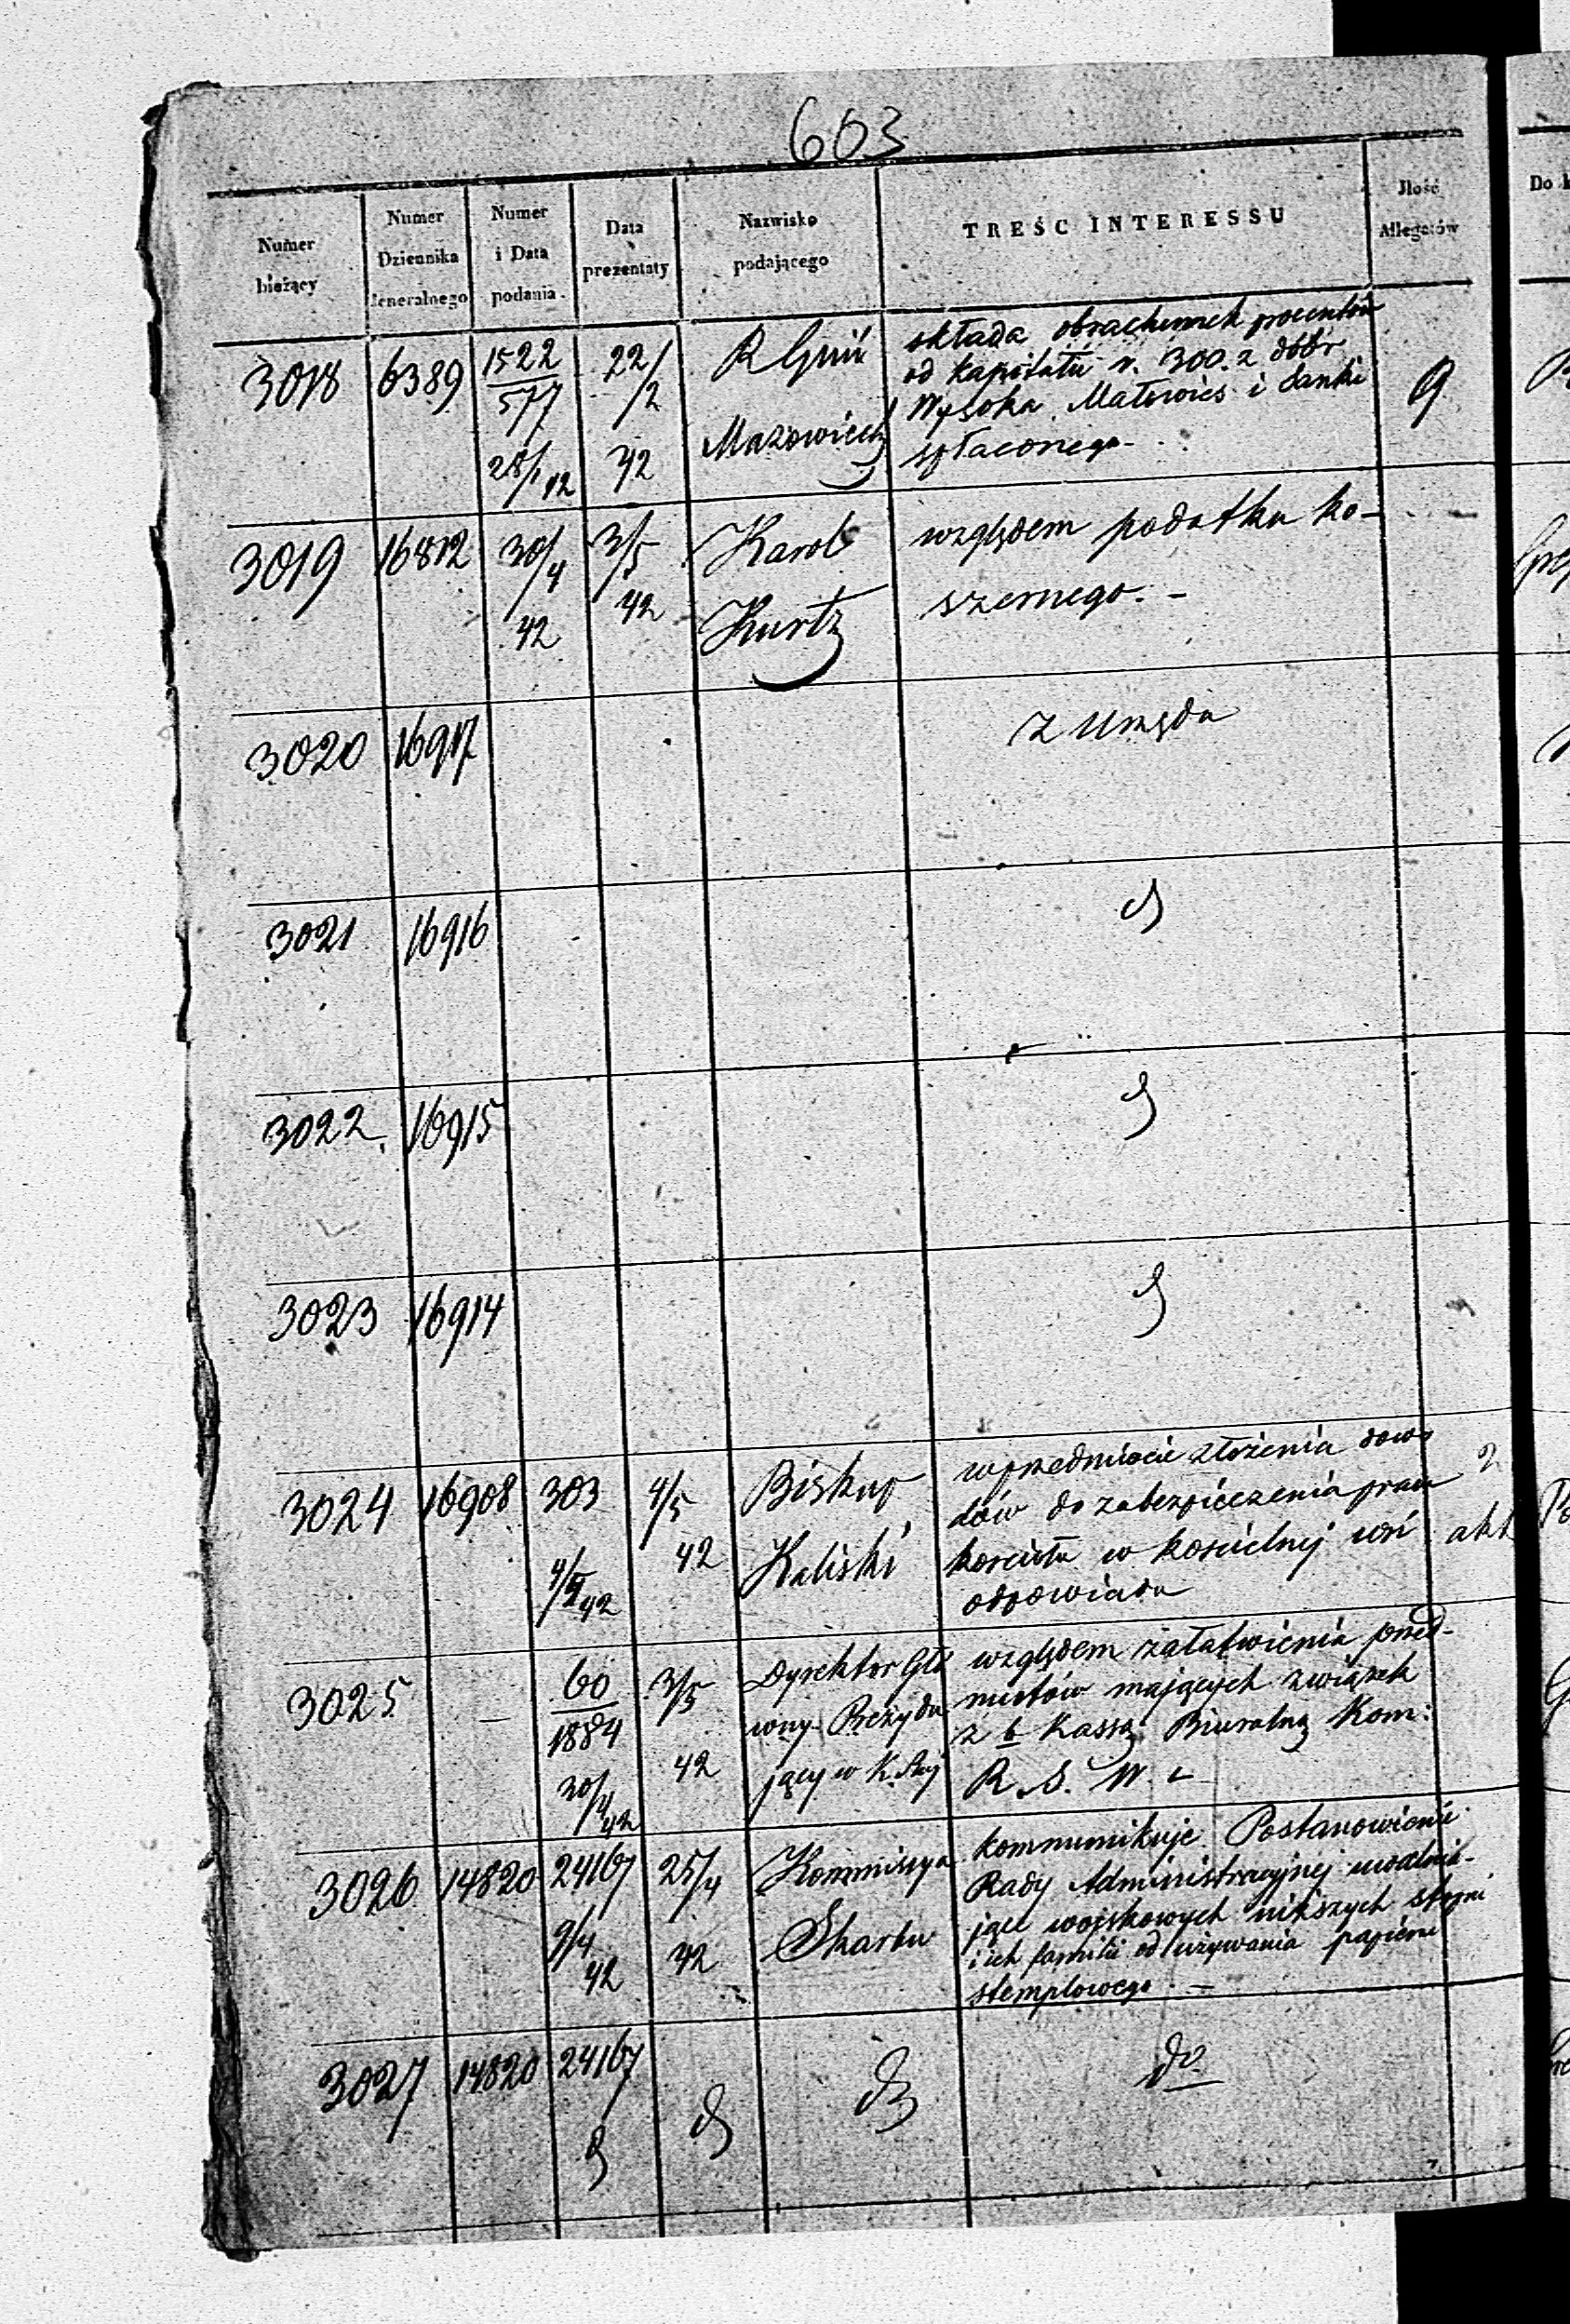 603
Numer bieżący
Numer Dziennika Jeneralnego
Numer i Data podania
Data prezentaty
Nazwisko podającego
TREŚĆ INTERESSU
Jlość Allegatów
3018 6389 1522/577 28/1 42 22/2 42 R Gnii Mazowiecki
składa obrachunek procentów
od kapitału r. 300. z dóbr
Wysoka Małowies i
spłaconego - 9
3019 16812 30/4 42 3/5 42 Karol Kurtz
względem podatku ko-
szernego. -
3020 16917 z Urzędu
3021 16916 d
3022. 16915 d
3023 16914 d
3024 16908 303 4/5 42 4/5 42 Biskup Kaliski
w przedmiocie złożenia dowo
dów do zabezpieczenia praw
kościoła w kościelnej wsi
odpowiada
2 akt
3025 - 60/1884 30/4 42 3/5 42 Dyrektor Głó
wny Prezydu
jący w K.
względem załatwienia przed-
miotów mających związek
z b Kassą Biuralną Kom:
R. S. W.
3026 14820 24167 9/4 42 25/4 42 Kommissya Skarbu
kommunikuje Postanowienie
Rady Administracyjnej uwalnia-
jące wojskowych niższych stopni
i ich familii od używania papieru
stemplowego. -
3027 14820 24167 d d d do